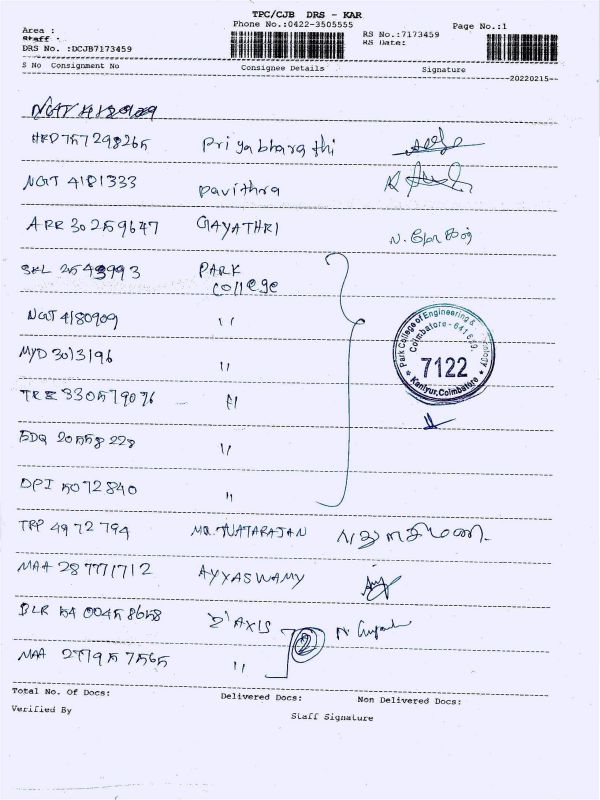 TPC/CJB DRS - KAR
Phone No.:0422-3505555
Page No.:1
Area :
Staff :
RS No.:7173459
RS Date:
DRS No. :DCJB7173459
S No Consignment No Consignee Details Signature
20220215
NGT 4180909
HRD 757298265 Priyabharathi
NGT 4181333 Pavithra
ARR 30259647 GAYATHRI
SKL 2543993 PARK
College
NGT 4180909 ''
MYD 3013196 ''
TRE 330579076 ''
EDQ 20558228 ''
DPI 5072840 ''
TRP 4972794 MR. NATARAJAN
MAA 287771712 AYYASWAMY
BLR 54 00458658 Z'AXIS
2
MAA 277957565 ''
Park College of Engineering &
Coimbatore - 641 659.
7122
Kaniyur, Coimbatore
Total No. Of Docs: Delivered Docs: Non Delivered Docs:
Verified By Staff Signature